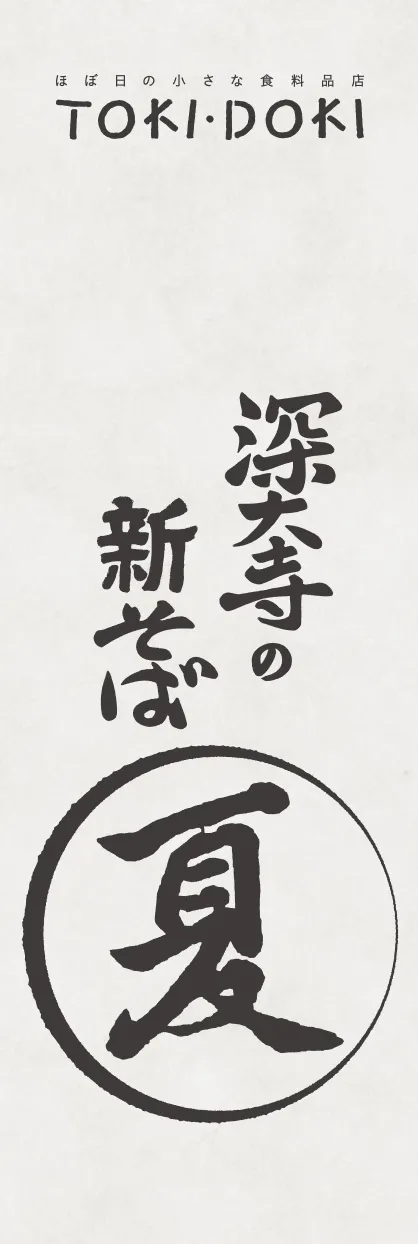 ほぼ日の小さな食料品店
TOKI・DOKI
深大寺の
新そば
夏